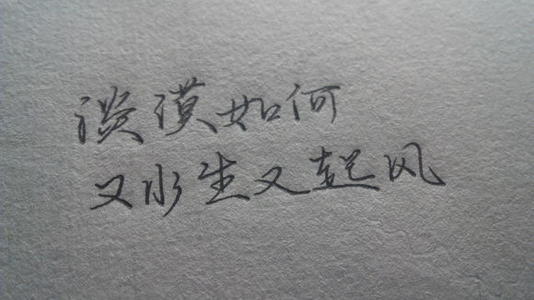 淡漠如何
又水生又起风